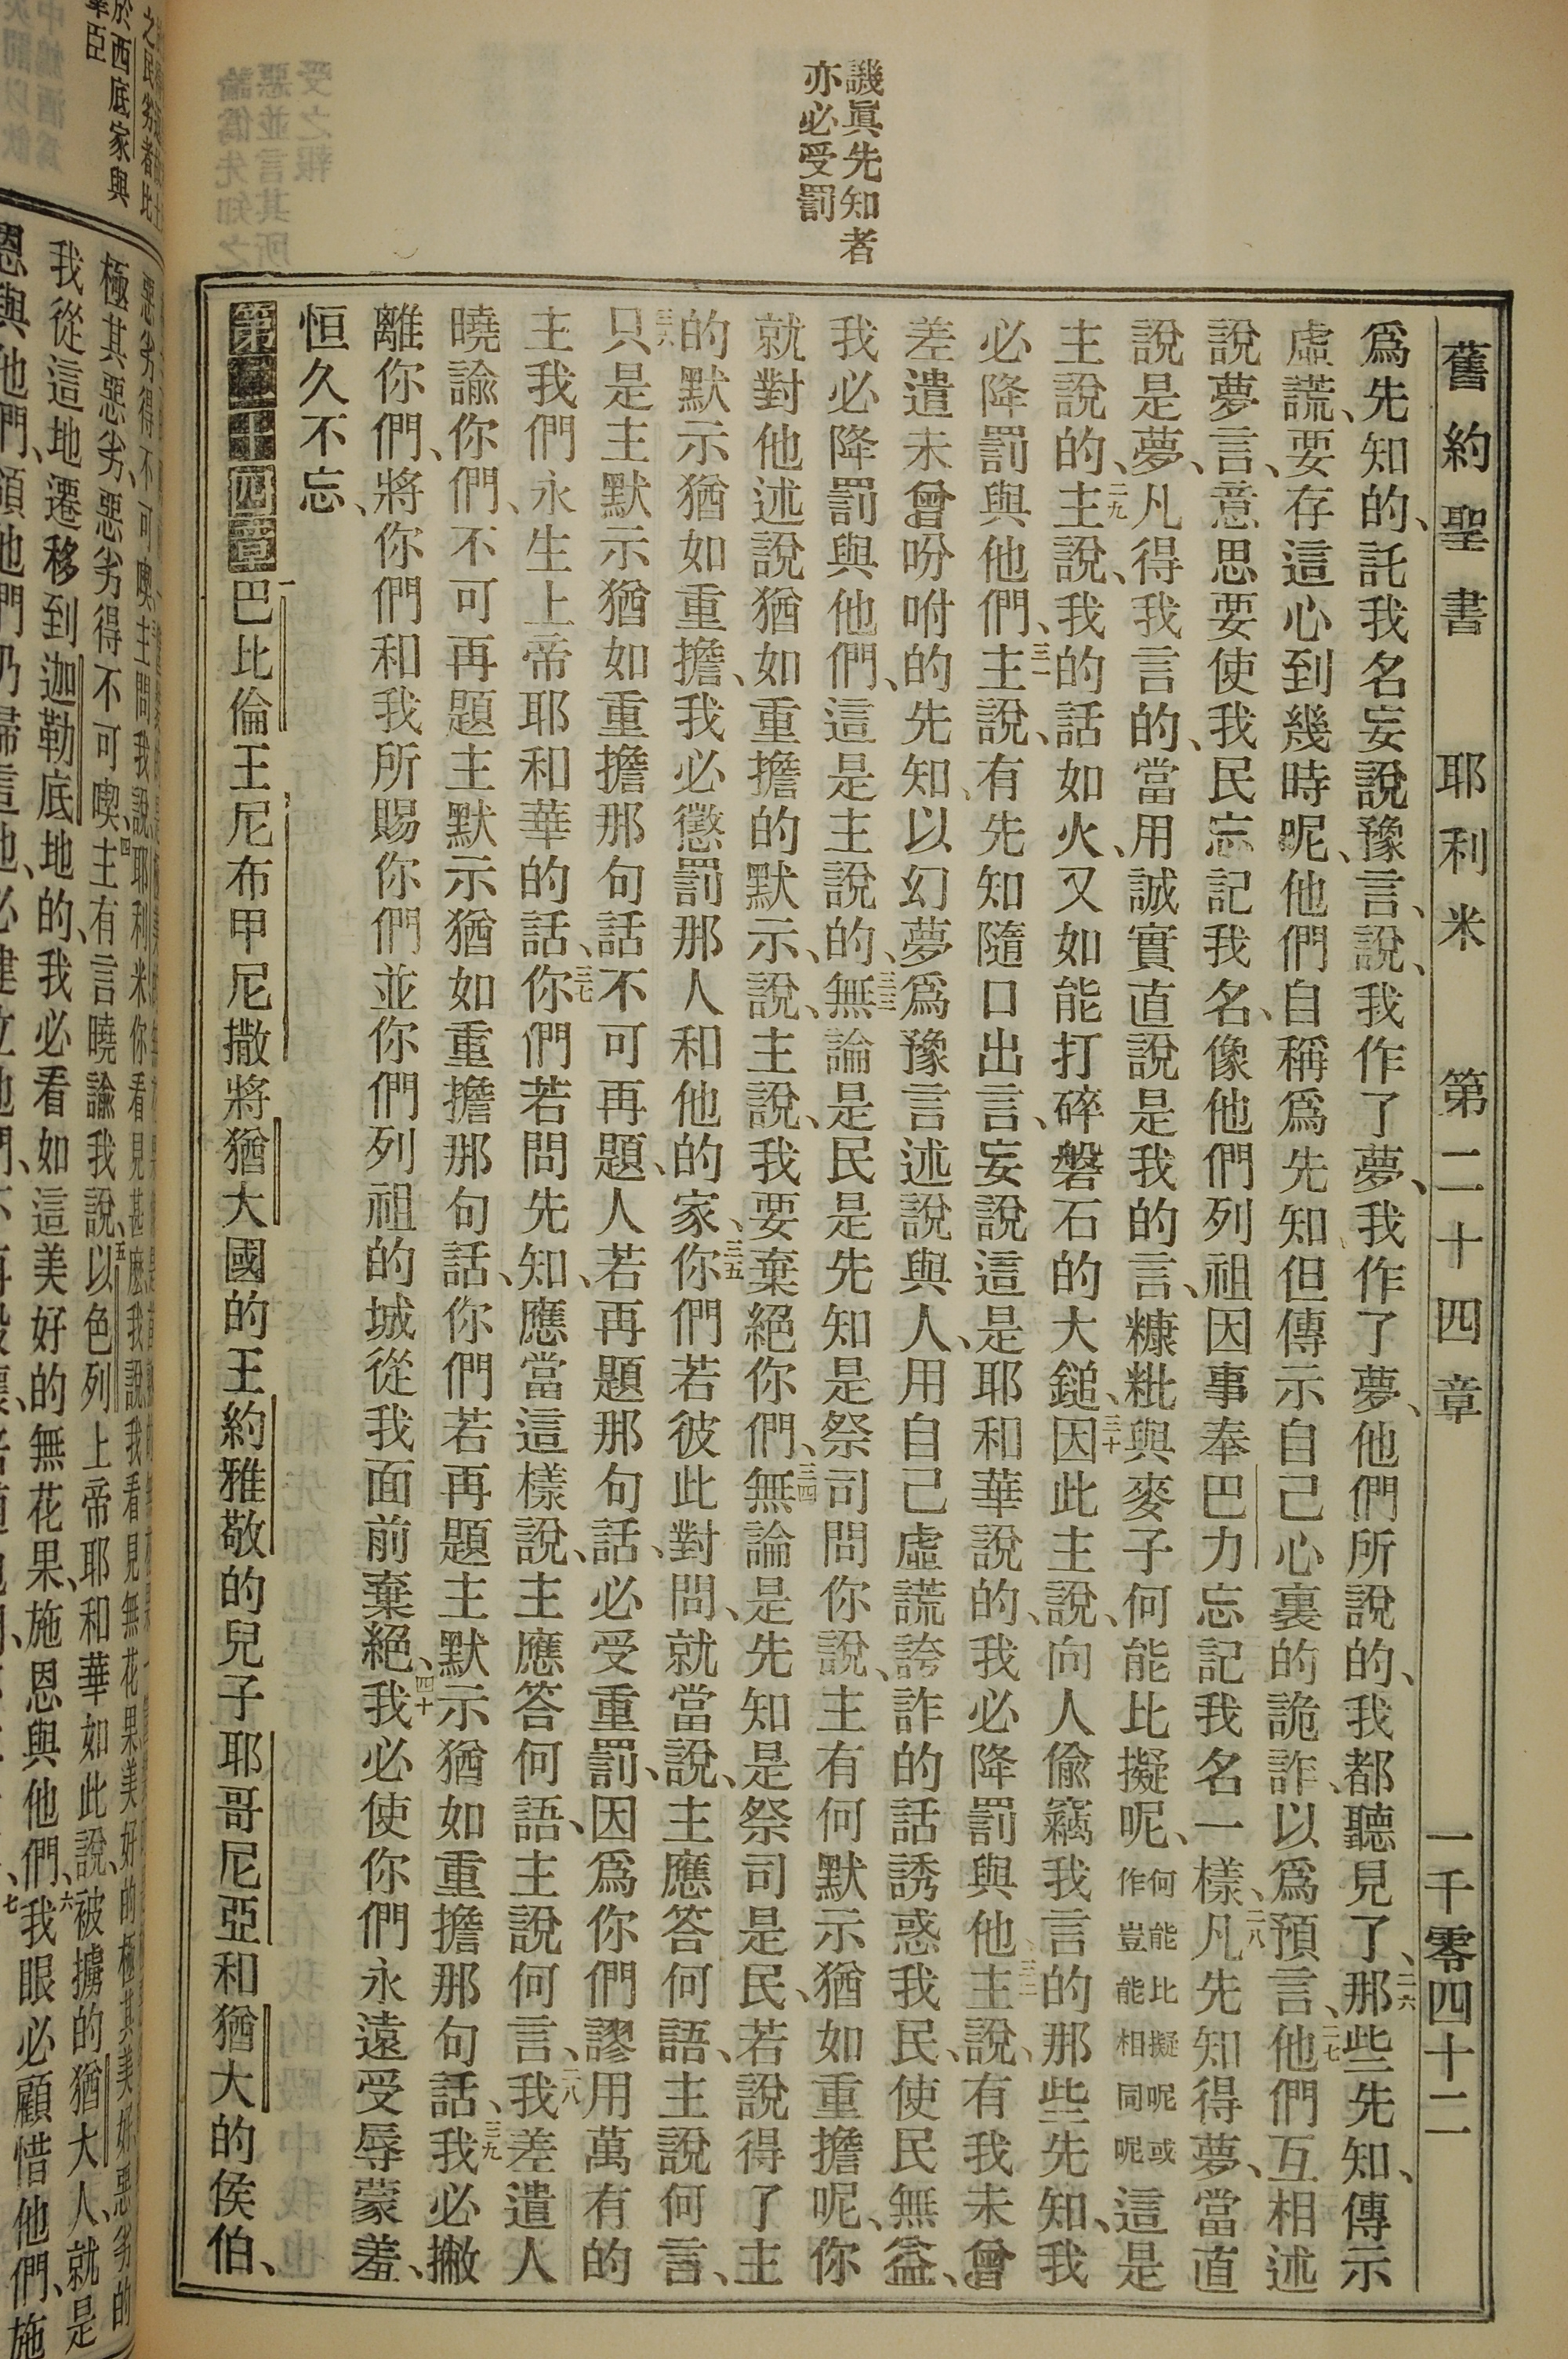 舊約聖書 耶利米 第二十四章 一千零四十二
譏眞先知者
亦必受罰
爲先知的、託我名妄說豫言、說、我作了夢、我作了夢、他們所說的、我都聽見了、二六那些先知、傳示
虛謊、要存這心到幾時呢、他們自稱爲先知但傳示自己心裏的詭詐、以爲預言、二七他們互相述
說夢言、意思要使我民忘記我名、像他們列祖因事奉巴力忘記我名一樣、二八凡先知得夢、當直
說是夢、凡得我言的、當用誠實直說是我的言、糠粃與麥子何能比擬呢、何能比擬呢或作豈能相同呢這是
主說的、二九主說、我的話如火、又如能打碎磐石的大鎚、三十因此主說、向人偸竊我言的那些先知、我
必降罰與他們、三一主說、有先知隨口出言、妄說這是耶和華說的、我必降罰與他、三二主說、有我未曾
差遣未曾吩咐的先知、以幻夢爲豫言述說與人、用自己虛謊誇詐的話誘惑我民、使民無益、
我必降罰與他們、這是主說的、三三無論是民是先知是祭司問你說、主有何默示猶如重擔呢、你
就對他述說猶如重擔的默示、說、主說、我要棄絕你們、三四無論是先知是祭司是民、若說得了主
的默示猶如重擔、我必懲罰那人和他的家、三五你們若彼此對問、就當說、主應答何語、主說何言、
三六只是主默示猶如重擔那句話不可再題、人若再題那句話、必受重罰、因爲你們謬用萬有的
主我們永生上帝耶和華的話、三七你們若問先知、應當這樣說、主應答何語、主說何言、三八我差遣人
曉諭你們、不可再題主默示猶如重擔那句話、你們若再題主默示猶如重擔那句話、三九我必撇
離你們、將你們和我所賜你們並你們列祖的城從我面前棄絕、四十我必使你們永遠受辱蒙羞、
恒久不忘、
第二十四章 一巴比倫王尼布甲尼撒將猶大國的王約雅敬的兒子耶哥尼亞和猶大的侯伯、
之民劣者比
於西底家與
羣臣
惡劣得不可喫、主問我說耶利米你看見甚麽我說我看見無花果美好的極其美好惡劣的
極其惡劣、惡劣得不可喫、四主有言曉諭我說、五以色列上帝耶和華如此說、被擄的猶大人、就是
我從這地遷移到迦勒底地的、我必看如這美好的無花果、施恩與他們、六我眼必顧惜他們、施